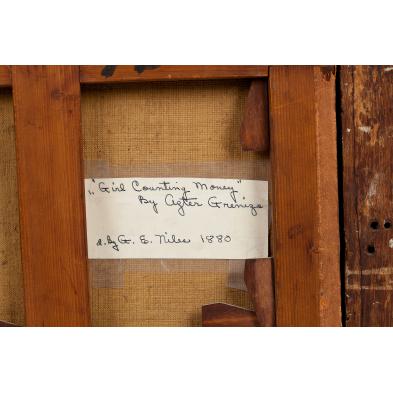 "Girl Counting Money"
By Agter Grenize
d. by G. E. Niles 1880